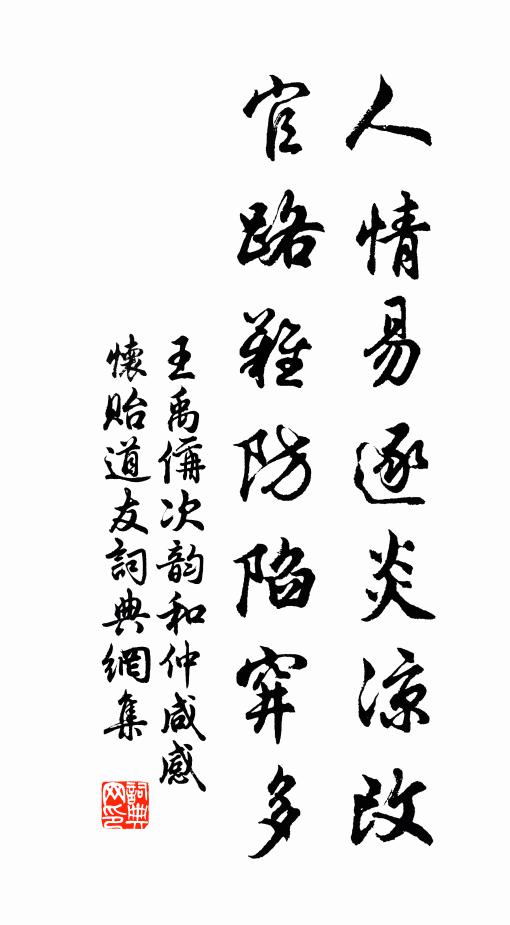 人情易逐炎涼改
官路難防陷穽多
王禹偁次韵和仲咸感
懷貽道友詞典網集
詞典网印